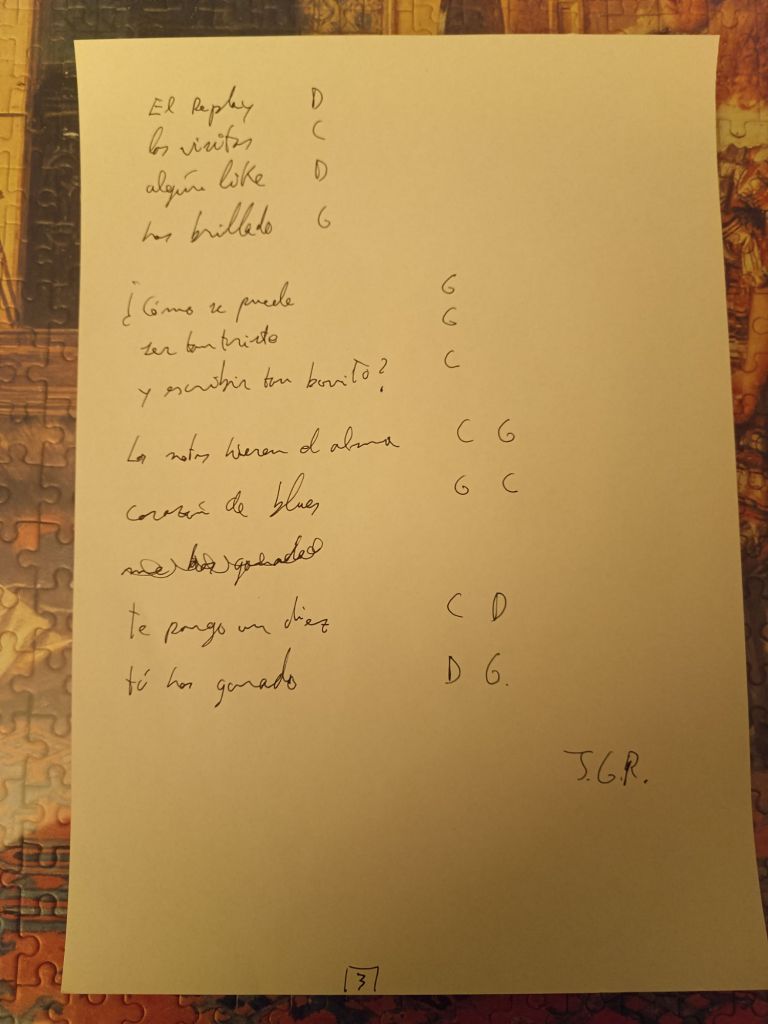 El Replay D
las visitas C
algún like D
has brillado G
¿Cómo se puede G
ser tan triste G
y escribir tan bonito? C
Las notas hieren el alma C G
corazón de blues G C
me has ganado
te pongo un diez C D
tú has ganado D G.
J.G.R.
3